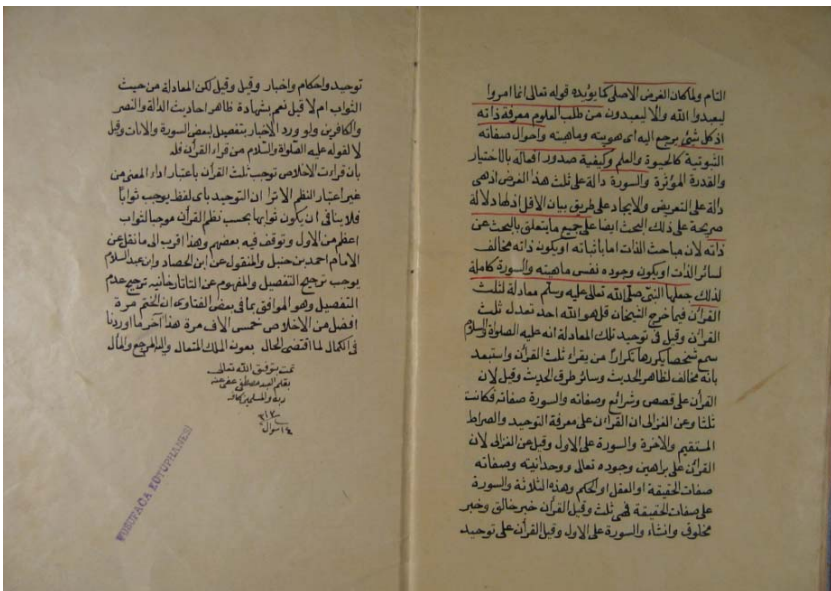 التام ولما كان الغرض الاصلى كما يؤيده قوله تعالى انما امروا
ليعبدوا الله والا ليعبدون من طلب العلوم معرفة ذاته
اذ كل شئ يرجع اليه اى هويته وماهيته واحوال صفاته
الثبوتية كالحيوة والعلم وكيفية صدور افعاله بالاختيار
والقدرة المؤثرة والسورة دالة على ثلث هذا الغرض اذ هى
دالة على التعريض والايجاد على طريق بيان الاقل اذ لها دلالة
صريحة على ذلك البحث ايضا على جميع ما يتعلق بالبحث عن
ذاته لان مباحث الذات اما باثباته او يكون ذاته مخالف
لسائر الذات او يكون وجوده نفس ماهيته والسورة كاملة
لذلك جعلها النبى صلى الله تعالى عليه وسلم معادلة لثلث
القرآن فيما خرج الشيخان قل هو الله احد تعدل ثلث
القرآن وقيل فى توحيد تلك المعادلة انه عليه الصلوة والسلام
سمع شخصا يكررها تكرارا من يقراء ثلث القرآن واستبعد
بانه مخالف لظاهر الحديث وسائر طرق الحديث وقيل لان
القرآن على قصص وشرائع وصفاته والسورة صفاته فكانت
ثلثا وعن الغزالى ان القرآن على معرفة التوحيد والصراط
المستقيم والاخرة والسورة على الاول وقيل عن الغزالى لان
القرآن على براهين وجوده تعالى ووحدانيته وصفاته
صفات الحقيقة او العقل او الحكم وهذه الثلاثة والسورة
على صفات الحقيقة فهى ثلث وقيل القرآن خبر خالق وخبر
مخلوق وانشاء والسورة على الاول وقيل القرآن على توحيد
توحيد واحكام واخبار وقيل وقيل لكن المعادلة من حيث
الثواب ام لا قيل نعم بشهادة ظاهر احاديث الدالة والنصر
والكافرين ولو ورد الاخبار بتفصيل بعض السورة والايات وقيل
لا لقوله عليه الصلوة والسلام من قراء القرآن فله
بان قراءت الاخلاص توجب ثلث القرآن باعتبار اداء المعنى من
غير اعتبار النظم الا ترا ان التوحيد باى لفظ يوجب ثوابا
فلا ينافى ان يكون ثوابها بحسب نظم القرآن موجبا لثواب
اعظم من الاول وتوقف فيه بعضهم وهذا اقرب الى ما نقل عن
الامام احمد بن حنبل والمنقول عن ابن الحصاد وابن عبد السلام
يوجب ترجيح التفصيل والمفهوم عن التاتارخانيه ترجيح عدم
التفصيل وهو الموافق بما فى بعض الفتاوى ان الختم مرة
افضل من الاخلاص خمس الاف مرة هذا آخر ما اوردنا
فى الكمال لما اقتضى الحال بعون الملك المتعال واليه المرجع والمآل
تمت بتوفيق الله تعالى
بقلم السيد مصطفى عفى عنه
ربه والمسلمين كافه
١٤ شوال
YUSUFAĞA KÜTÜPHANESİ